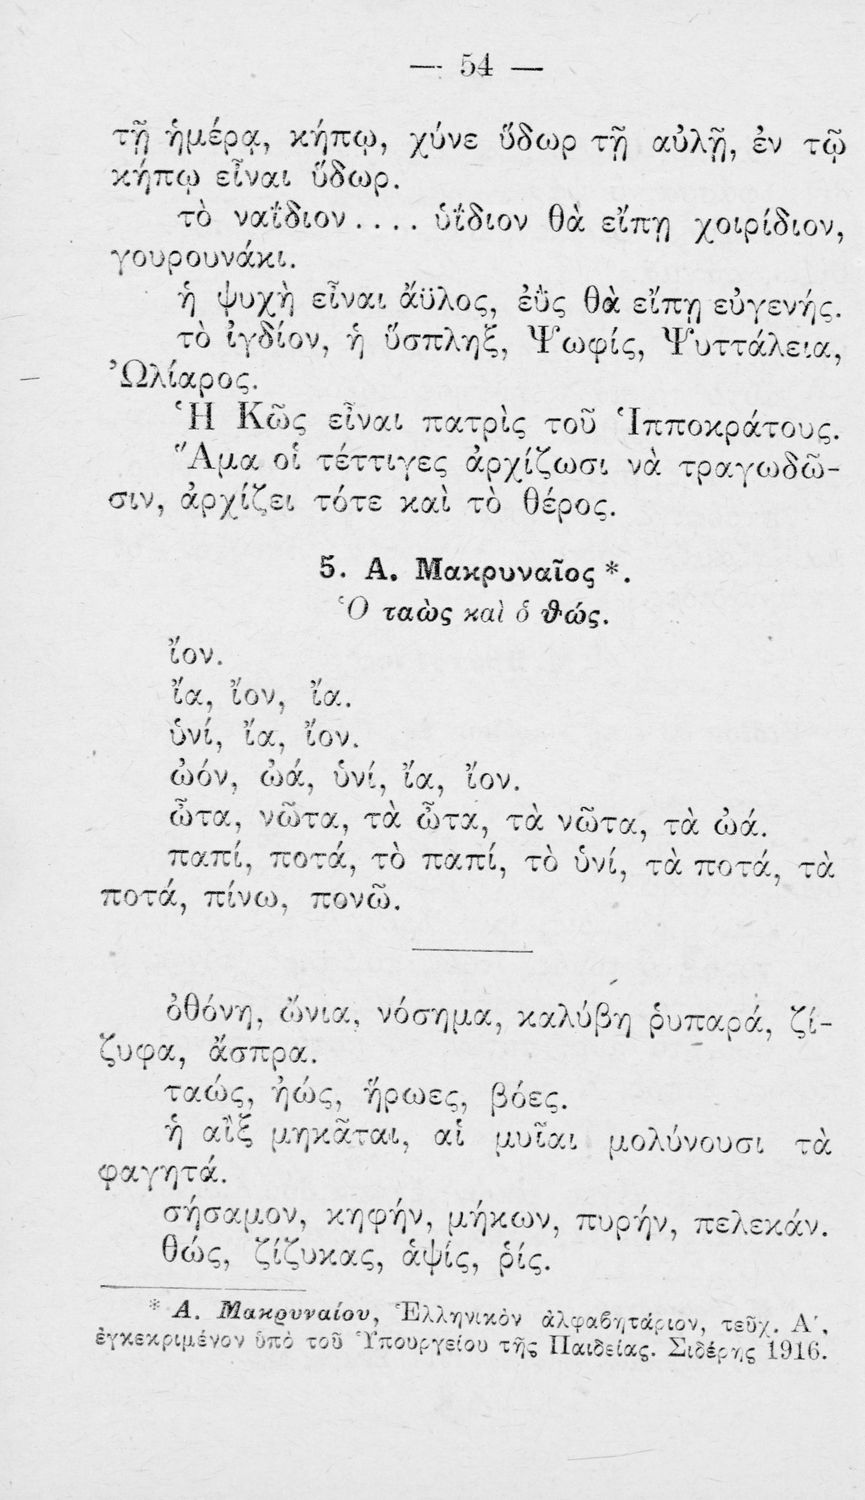 — 54 —
τῇ ἡμέρᾳ, κήπῳ, χύνε ὕδωρ τῇ αὐλῇ, ἐν τῷ
κήπῳ εἶναι ὕδωρ.
τὸ ναΐδιον.... ὑΐδιον θὰ εἴπῃ χοιρίδιον,
γουρουνάκι.
ἡ ψυχὴ εἶναι ἄϋλος, ἐΰς θὰ εἴπῃ εὐγενής.
τὸ ἰγδίον, ἡ ὕσπληξ, Ψωφίς, Ψυττάλεια,
Ὠλίαρος.
Ἡ Κῶς εἶναι πατρὶς τοῦ Ἱπποκράτους.
Ἅμα οἱ τέττιγες ἀρχίζωσι νὰ τραγωδῶ-
σιν, ἀρχίζει τότε καὶ τὸ θέρος.
5. Α. Μακρυναῖος *.
Ὁ ταὼς καὶ ὁ θώς.
ἴον.
ἴα, ἴον, ἴα.
ὑνί, ἴα, ἴον.
ὠόν, ὠά, ὑνί, ἴα, ἴον.
ὦτα, νῶτα, τὰ ὦτα, τὰ νῶτα, τὰ ὠά.
παπί, ποτά, τὸ παπί, τὸ ὑνί, τὰ ποτά, τὰ
ποτά, πίνω, πονῶ.
ὀθόνη, ὤνια, νόσημα, καλύβη ῥυπαρά, ζί-
ζυφα, ἄσπρα.
ταώς, ἠώς, ἥρωες, βόες.
ἡ αἲξ μηκᾶται, αἱ μυῖαι μολύνουσι τὰ
φαγητά.
σήσαμον, κηφήν, μήκων, πυρήν, πελεκάν.
θώς, ζίζυκας, ἁψίς, ῥίς.
* Α. Μακρυναίου, Ἑλληνικὸν ἀλφαβητάριον, τεῦχ. Α΄,
ἐγκεκριμένον ὑπὸ τοῦ Ὑπουργείου τῆς Παιδείας. Σιδέρης 1916.